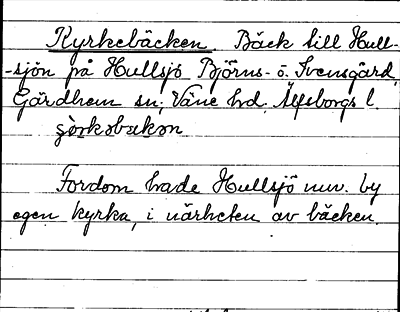 Kyrkebäcken. Bäck till Hull-
-sjön på Hullsjö Björns- o. Svensgård,
Gärdhem sn, Väne hd. Älfsborgs l.
Fordom hade Hullsjö nuv. by
egen kyrka, i närheten av bäcken.